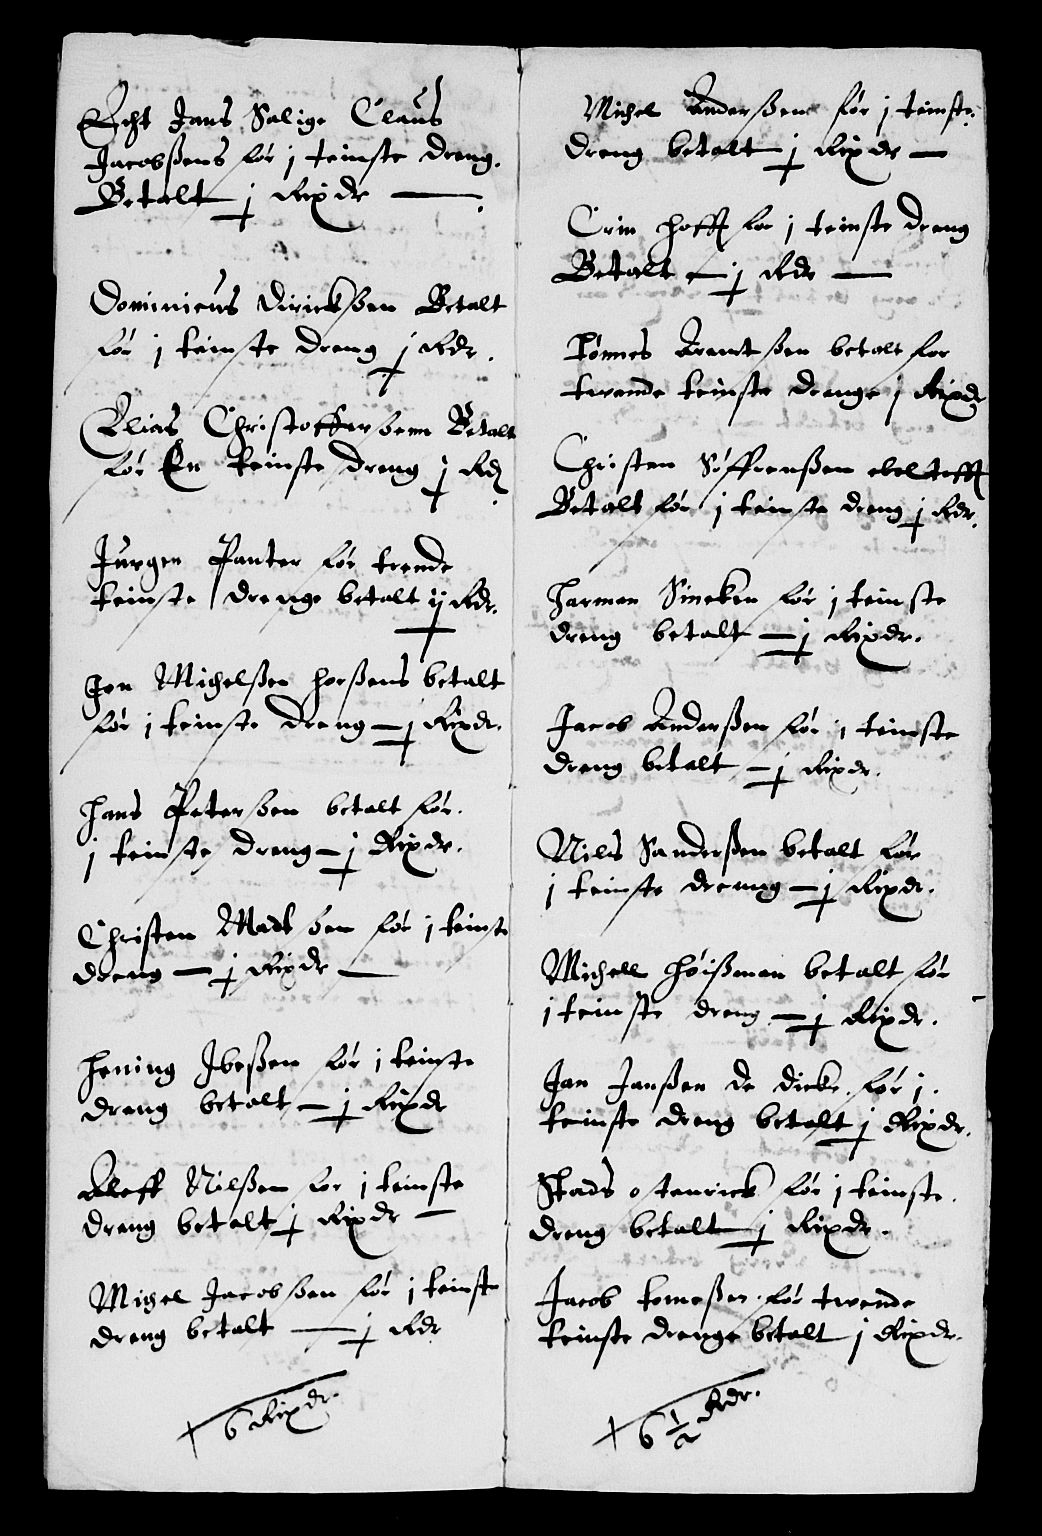 Echt Jans Salige Claus
Jacobßens før j teinste dreng.
Betalt j Rixdr
Dominicus Dirickßen Betalt
før j teinste dreng j Rdr.
Elias Christofferßenn Betalt
før En teinste dreng j Rd
Jurgen Panter før trende
teinste drenge betalt ij Rdr.
Jon Michelßen horßens betalt
før j teinste dreng j Rixdr.
Hans Peterßen betalt før.
j teinste dreng j Rixdr.
Christen Madtßen før j teinste
dreng j Rixdr
Hening Jbeßen før j teinste
dreng betalt j Rixdr
Oloff Nilßen for j teinste
dreng betalt j Rixdr
Migel Jacobßen før j teinste
dreng betalt j Rdr
6 Rixdr.
Michel Anderßen før j teinste.
dreng betalt j Rixdr
Crin Hoff for j teinste dreng
Betalt j Rdr
Tønnes Arentßen betalt for
twende teinste drenge j Rixdr
Christen Søffrenßen ebeltofft
Betalt før j teinste dreng j Rdr.
Harmen Sineken før j teinste
dreng betalt j Rixdr.
Jacob Anderßen før j teinste
dreng betalt j Rixdr.
Nils Sanderßen betalt før
j teinste drenng j Rixdr.
Michell Høißman betalt før
j teinste dreng j Rixdr.
Jan Janßen de Dicke før j.
teinste dreng betalt j Rixdr.
Stads ostenrick før j teinste.
dreng betalt j Rixdr.
Jacob tomeßen før twende
teinste drenge betalt j Rixdr.
6 1/2 Rdr.